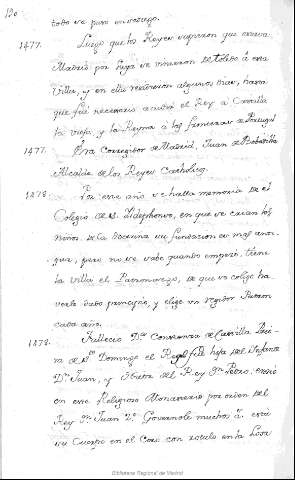 120
todo se puso en sosiego.
1477. Luego que los Reyes supieron que estava
Madrid por suya se vinieron de Toledo á esta
Villa, y en ella residieron algunos dias, hasta
que fué necesario acudir el Rey a Castilla
la vieja, y la Reyna a las fronteras de Portugal
1477. Era Corregidor de Madrid, Juan de Bobadilla
Alcaide de los Reyes Catholicos.
1478. Por este año se halla memoria de el
Colegio de S. Ildephonso, en que se crian los
niños de la Doctrina su fundacion es mas anti-
gua, pero no se sabe quando empezó, tiene
la villa el Patronazgo, de que se colige ha-
verle dado principio, y elige un regidor Patron
cada año.
1478. Fallecio Dª Constanza de Castilla Prio-
ra de Sto Domingo el Real fué hija del Infante
Dn Juan, y Nieta del Rey Dn Pedro, entró
en este Religioso Monasterio por orden del
Rey Dn Juan 2º. Governole muchos á. está
su Cuerpo en el Coro con rotulo en la Losa
Biblioteca Regional de Madrid